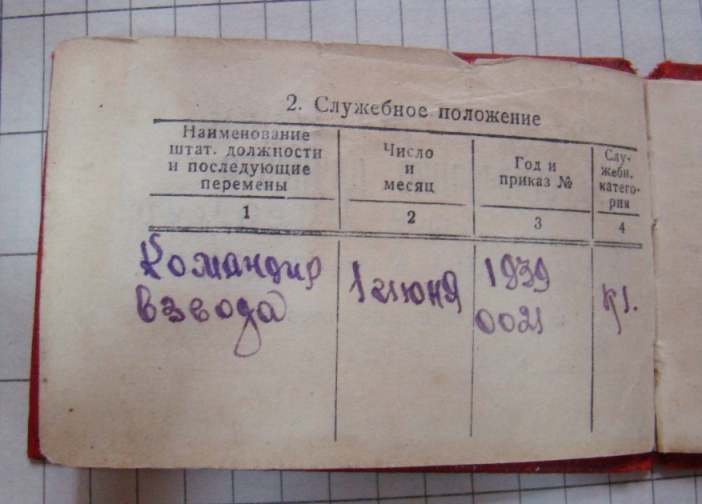 2. Служебное положение
Наименование
штат. должности
и последующие
перемены
Число
и
месяц
Год и
приказ №
Слу-
жебн.
катего-
рия
1
2
3
4
Командир
взвода
1 июня
1939
0021
К1.